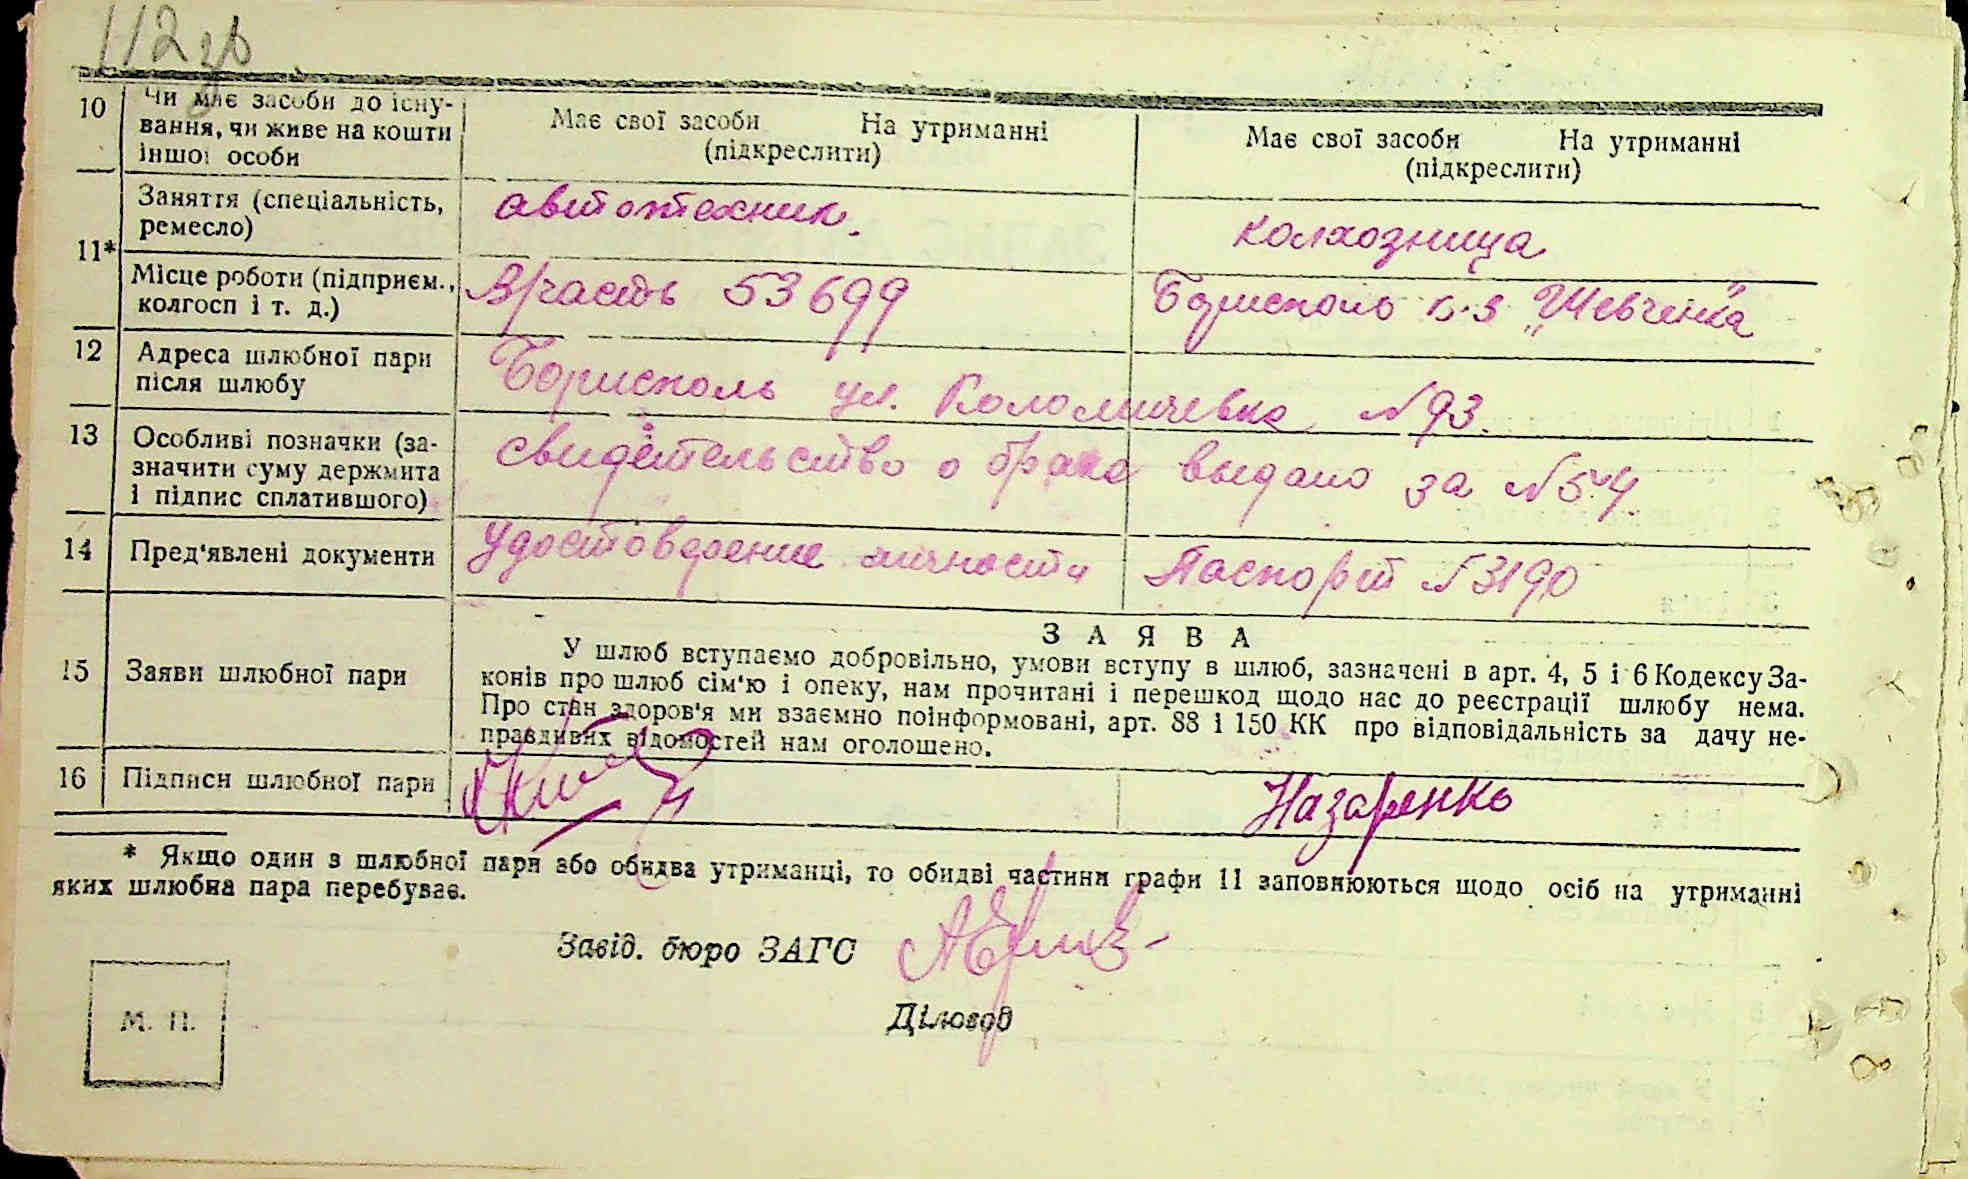 112 зв
10 Чи має засоби до існу-
вання, чи живе на кошти
іншої особи
Має свої засоби На утриманні
(підкреслити)
Має свої засоби На утриманні
(підкреслити)
11*
Заняття (спеціальність,
ремесло)
автотехник.
колхозница
Місце роботи (підприєм.,
колгосп і т. д.)
В/часть 53699
Борисполь к-з „Шевченка"
12 Адреса шлюбної пари
після шлюбу
Борисполь ул. №93.
13 Особливі позначки (за-
значити суму держмита
і підпис сплатившого)
свидетельство о браке выдано за №54.
14 Пред'явлені документи
Удостоверение личности
Паспорт №3190
15 Заяви шлюбної пари
ЗАЯВА
У шлюб вступаємо добровільно, умови вступу в шлюб, зазначені в арт. 4, 5 і 6 Кодексу За-
конів про шлюб сім'ю і опеку, нам прочитані і перешкод щодо нас до реєстрації шлюбу нема.
Про стан здоров'я ми взаємно поінформовані, арт. 88 і 150 КК про відповідальність за дачу не-
правдивих відомостей нам оголошено.
16 Підписи шлюбної пари
Назаренко
* Якщо один з шлюбної пари або обидва утриманці, то обидві частини графи 11 заповнюються щодо осіб на утриманні
яких шлюбна пара перебуває.
Завід. бюро ЗАГС
Діловод
М. П.